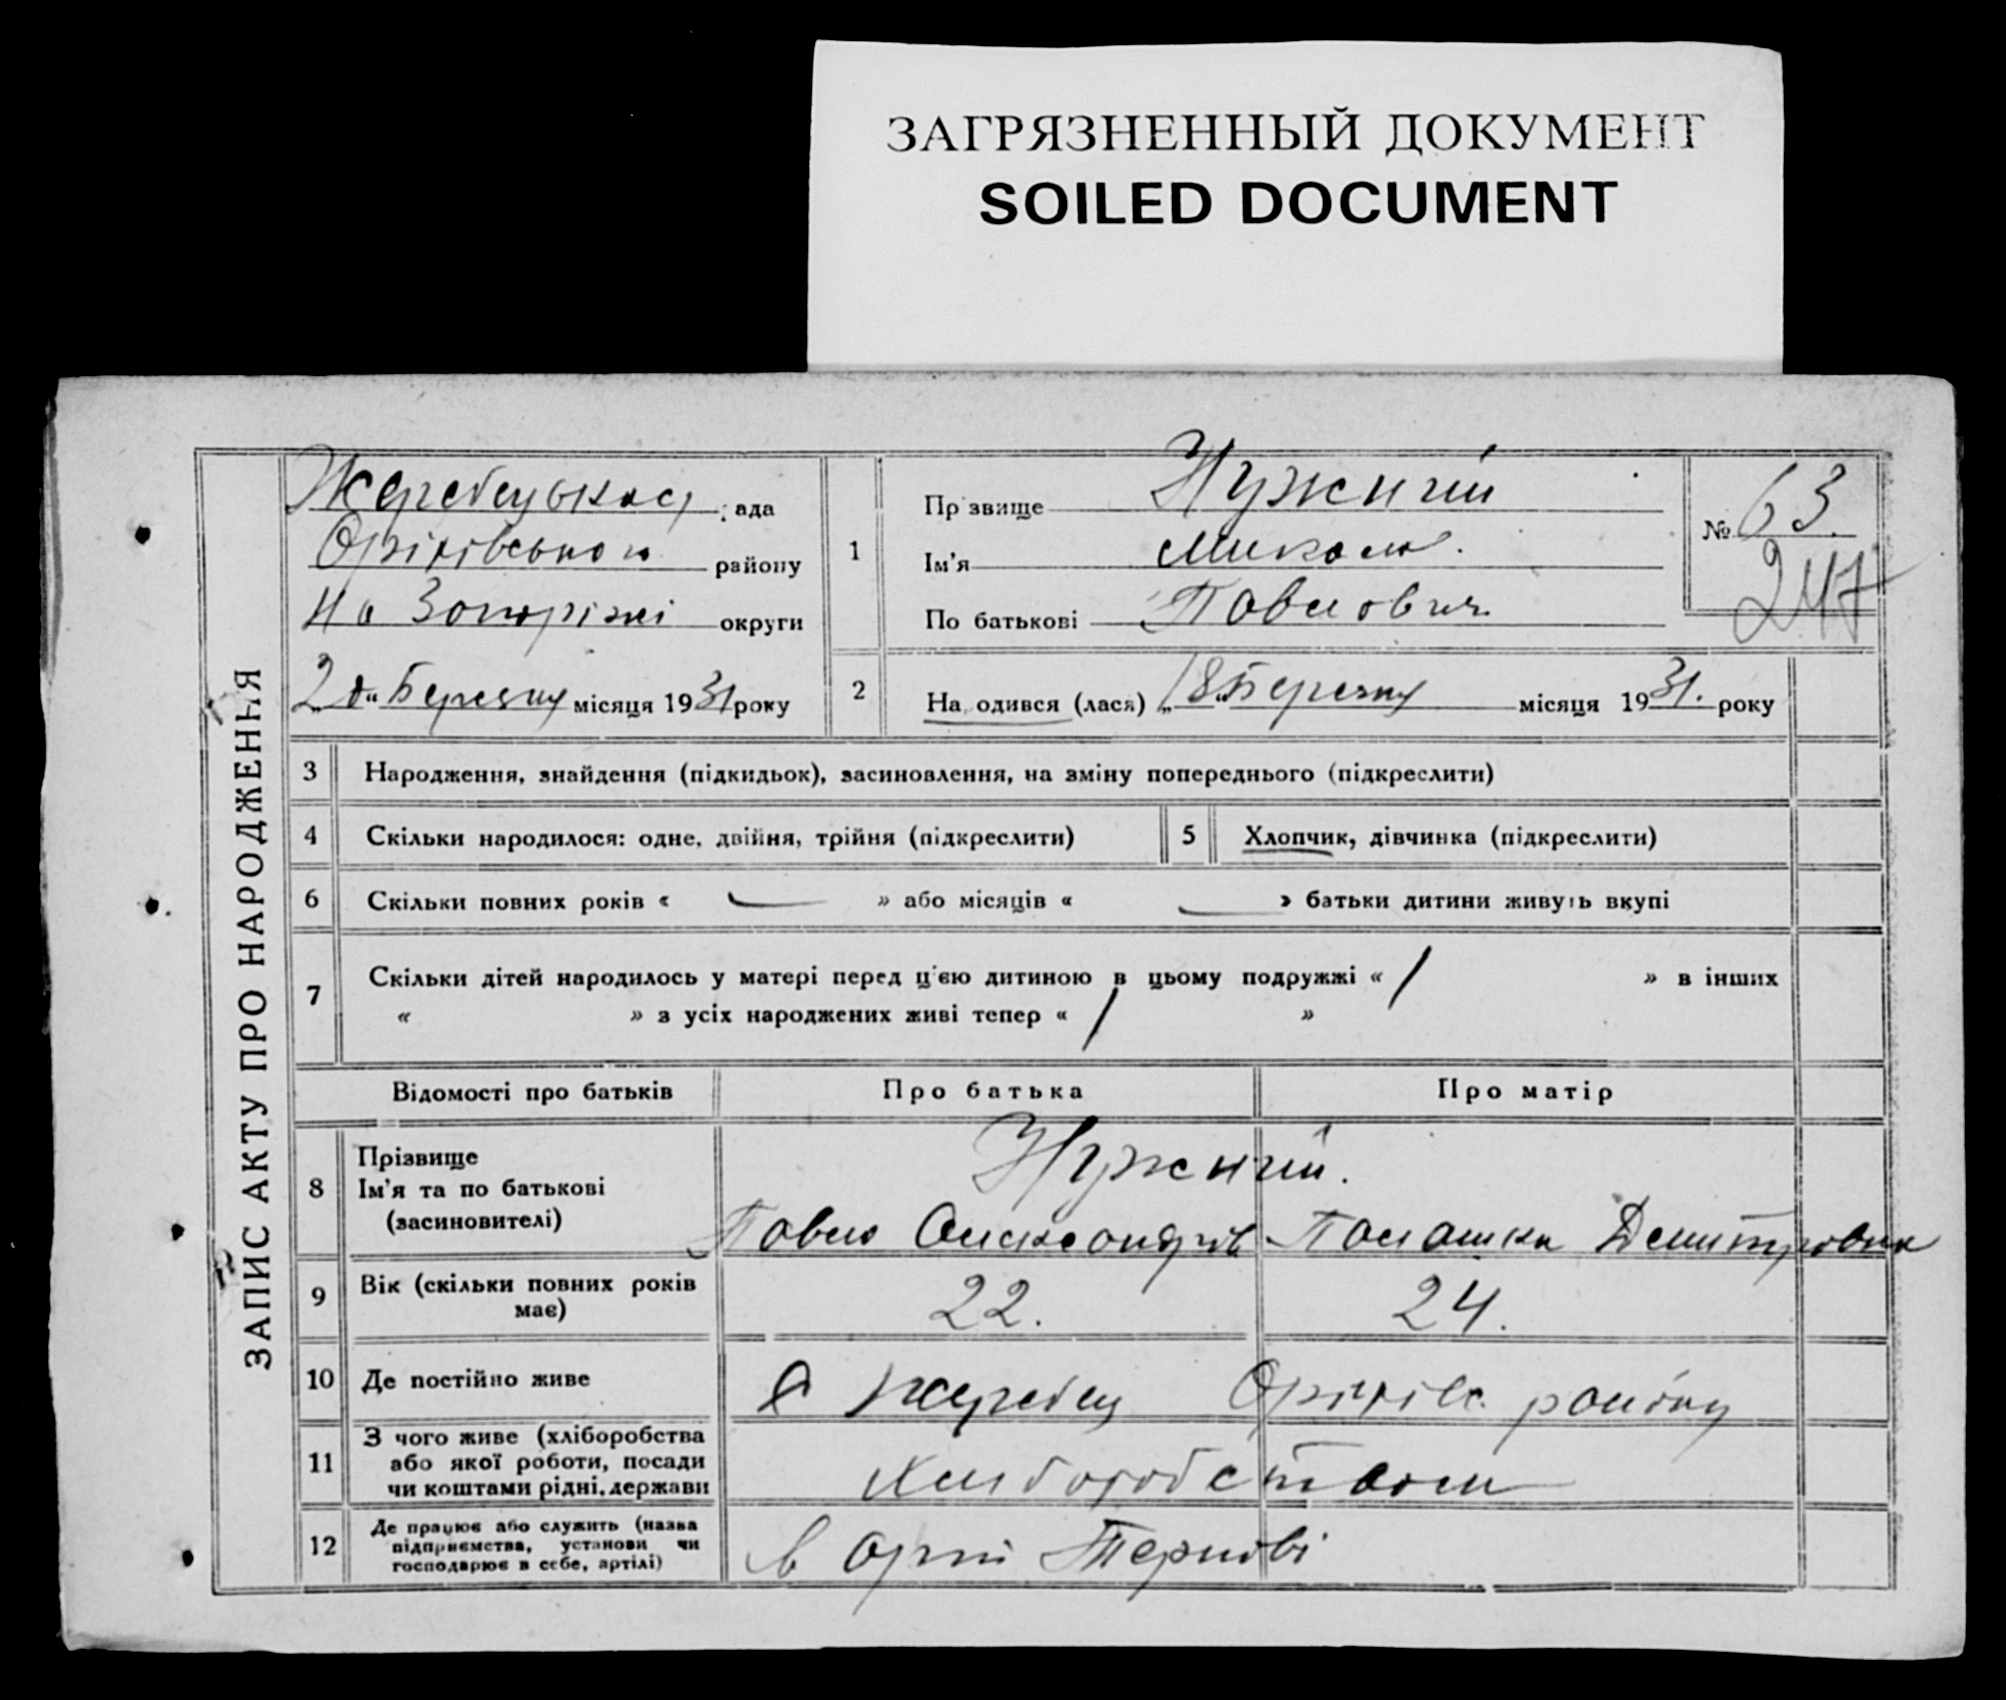 ЗАГРЯЗНЕННЫЙ ДОКУМЕНТ
SOILED DOCUMENT
ЗАПИС АКТУ ПРО НАРОДЖЕННЯ
Жеребецька рада
Оріхівського району
на Запоріжі округи
„20“ Березня місяця 1931 року
1
Пр звище Нужний
Ім'я Микола.
По батькові Павлович
№ 63.
247
2
На одився (лася) „18“ Березня місяця 1931. року
3 Народження, знайдення (підкидьок), засиновлення, на зміну попереднього (підкреслити)
4 Скільки народилося: одне, двійня, трійня (підкреслити)
5 Хлопчик, дівчинка (підкреслити)
6 Скільки повних років « — » або місяців « — » батьки дитини живуть вкупі
7 Скільки дітей народилось у матері перед ц'єю дитиною в цьому подружжі « 1 » в інших
« » з усіх народжених живі тепер « 1 »
Відомості про батьків Про батька Про матір
8 Прізвище
Ім'я та по батькові
(засиновителі)
Нужний.
Павло Олександров Палашка Демитровна
9 Вік (скільки повних років
має)
22. 24.
10 Де постійно живе с Жеребец Оріхівс. району
11 З чого живе (хліборобства
або якої роботи, посади
чи коштами рідні, держави
Хліборобством
12 Де працює або служить (назва
підприємства, установи чи
господарює в себе, артілі)
в